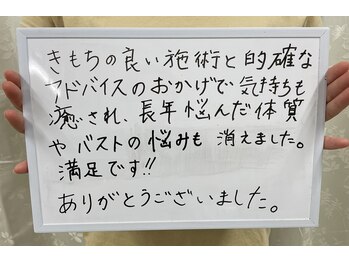 きもちの良い施術と的確な
アドバイスのおかげで気持ちも
癒され、長年悩んだ体質
やバストの悩みも 消えました。
満足です!!
ありがとうございました。